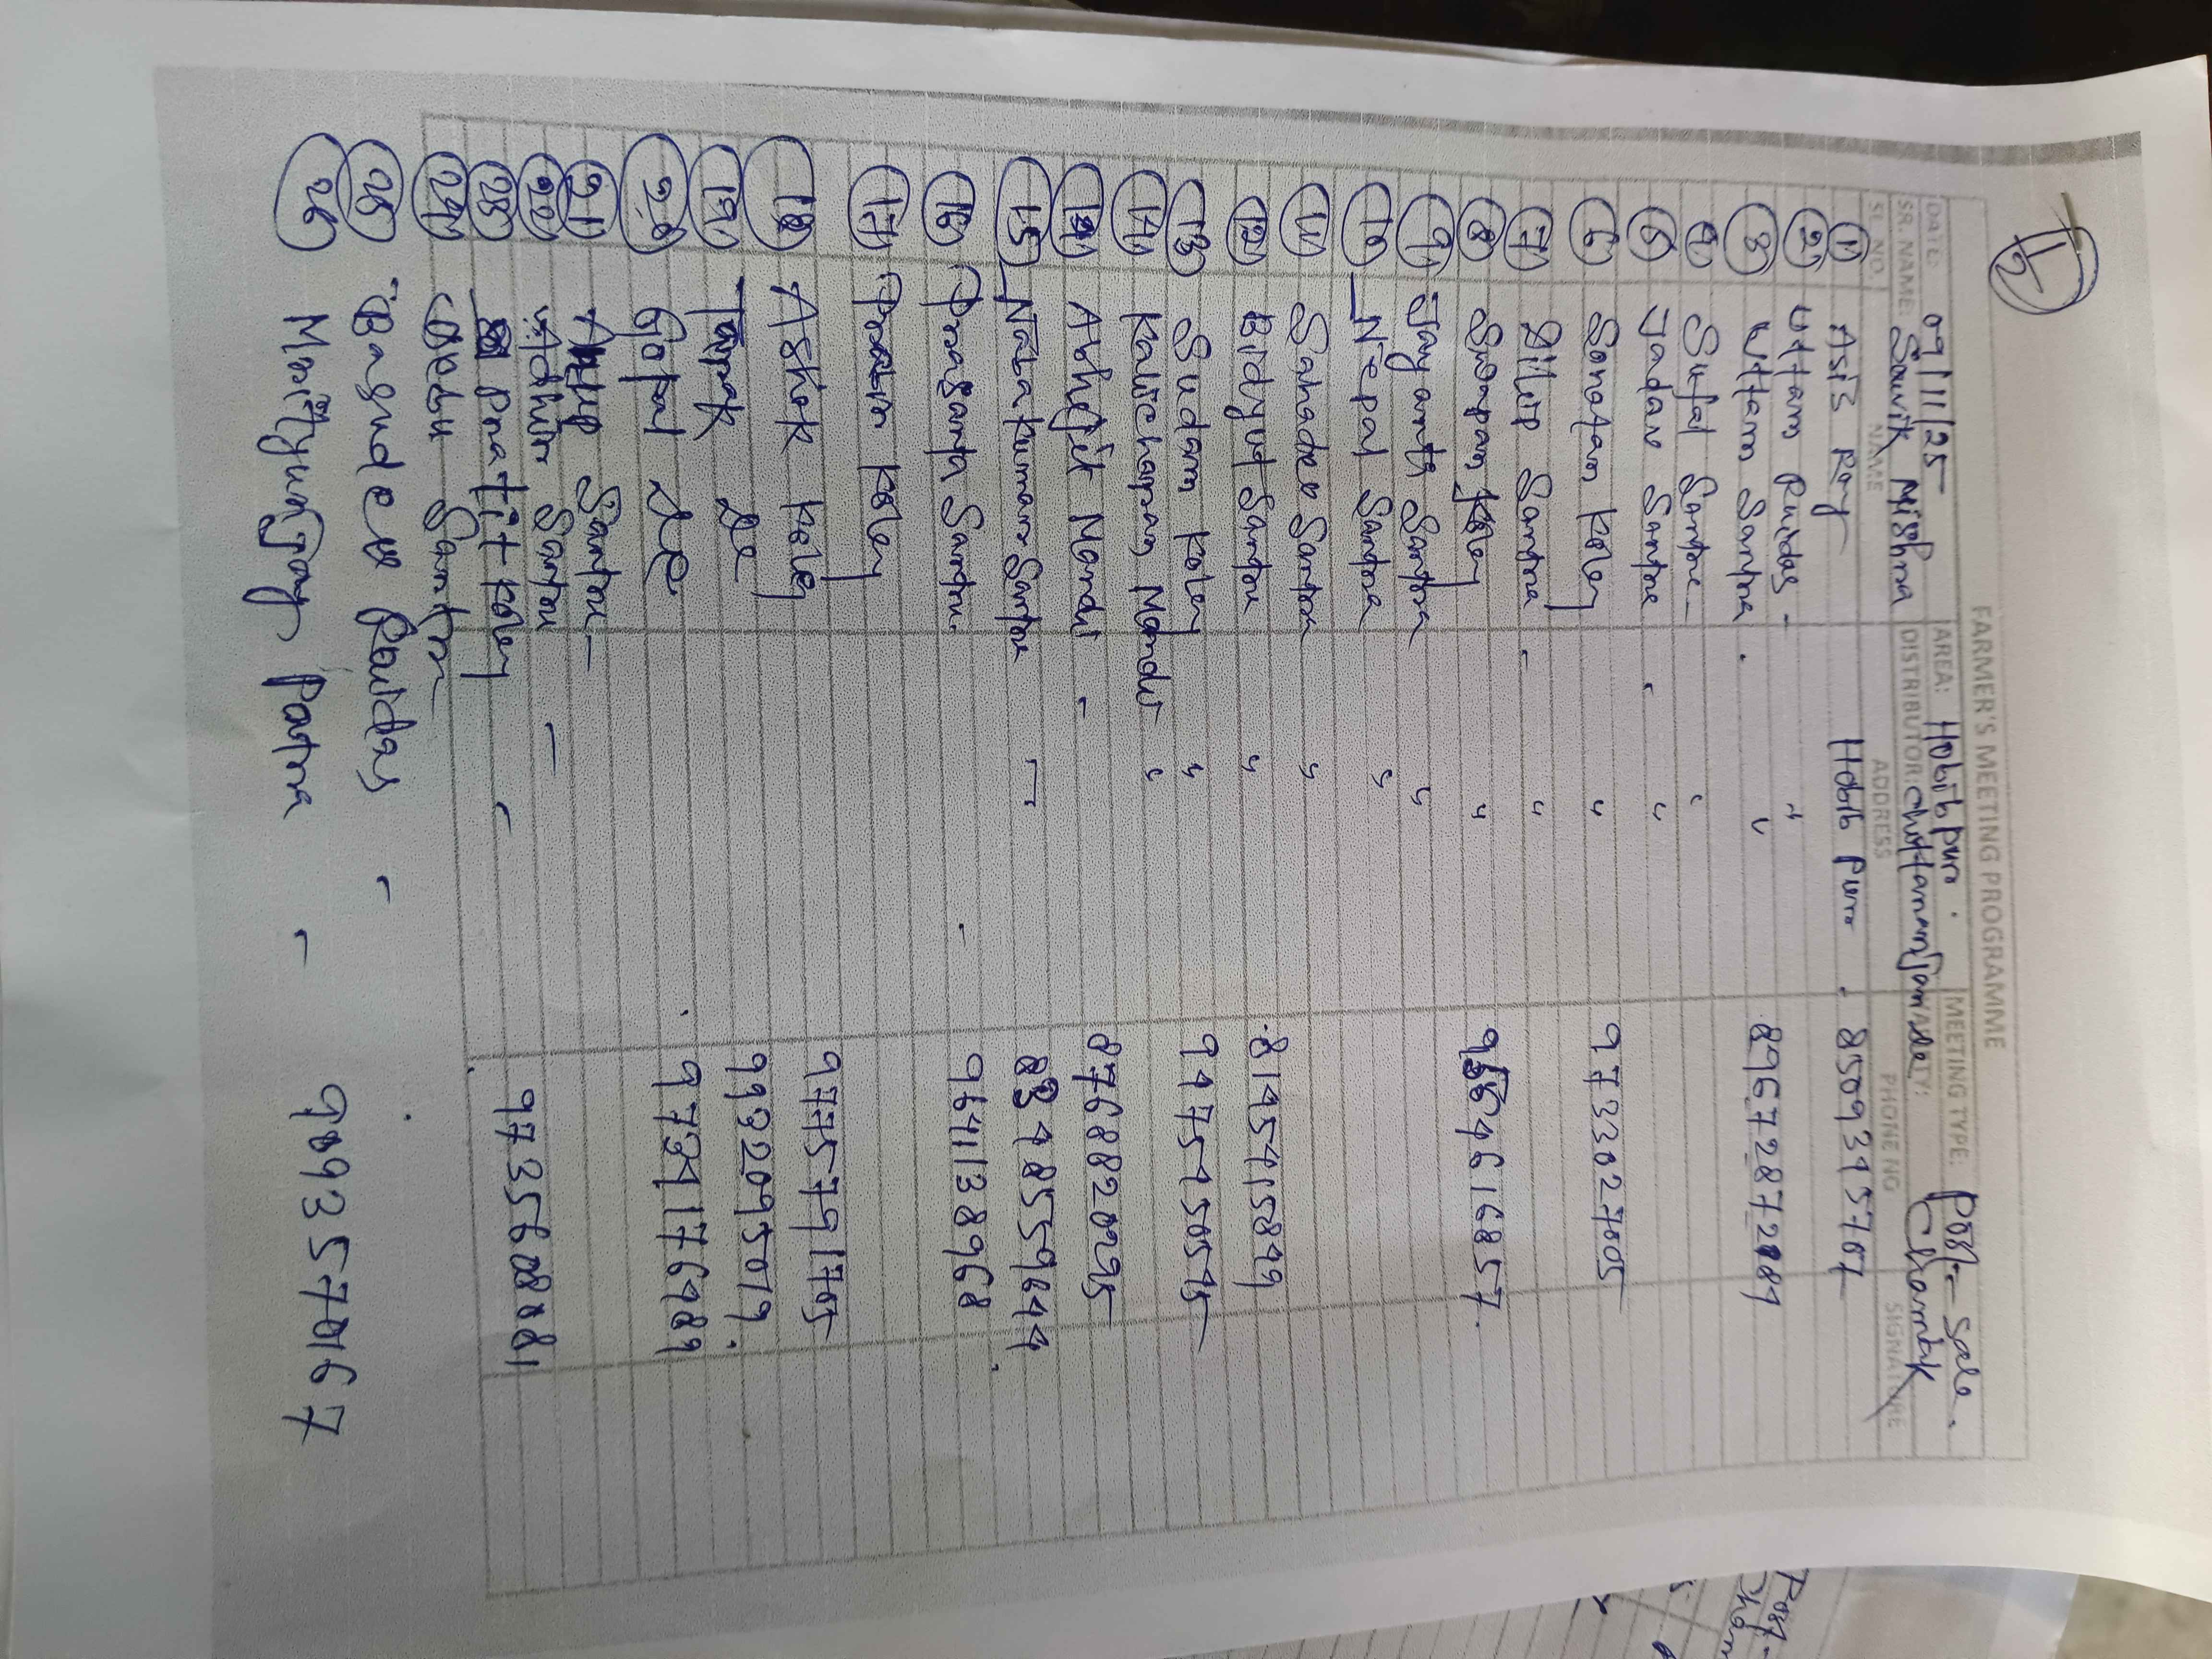 12
FARMER'S MEETING PROGRAMME
DATE: 09/11/25 AREA: Hobibpur. MEETING TYPE: Post- Sale.
SR. NAME: Souvik Mishra DISTRIBUTOR: Chittaranjan De Chamtak
SL. NO. NAME ADDRESS PHONE NO SIGNATURE
1) Asis Roy Hobibpur - 8509345707
2) Uttam Ruidas - "
3) Uttam Santra . "
8967287289
4) Sufal Santra - "
5) Jadav Santra "
6) Sanatan Koley " 9733027005
7) Dilip Santra - "
8) Swapan Koley " 9564616857.
9) Jayanta Santra "
10) Nepal Santra "
11) Sahadev Santra "
12) Bidyut Santra " 8145415899
13) Sudam Koley " 9475450545
14) Kalicharan Mandi "
14) Abhijit Mandi - 8768820295
15) Naba kumar Santra - 8348559644
16) Prasanta Santra - 9641138968
17) Koley
18) Ashok Koley 9775791705
19) Tarak De 9932095019.
20) Gopal De 9734176989
21) Anup Santra -
22) Adhir Santra -
23) Pratit Koley " 9735608081
24) Debu Santra
25) Basudeb Ruidas -
26) Mrityunjay Patra - 9093570167
Post-
Cham